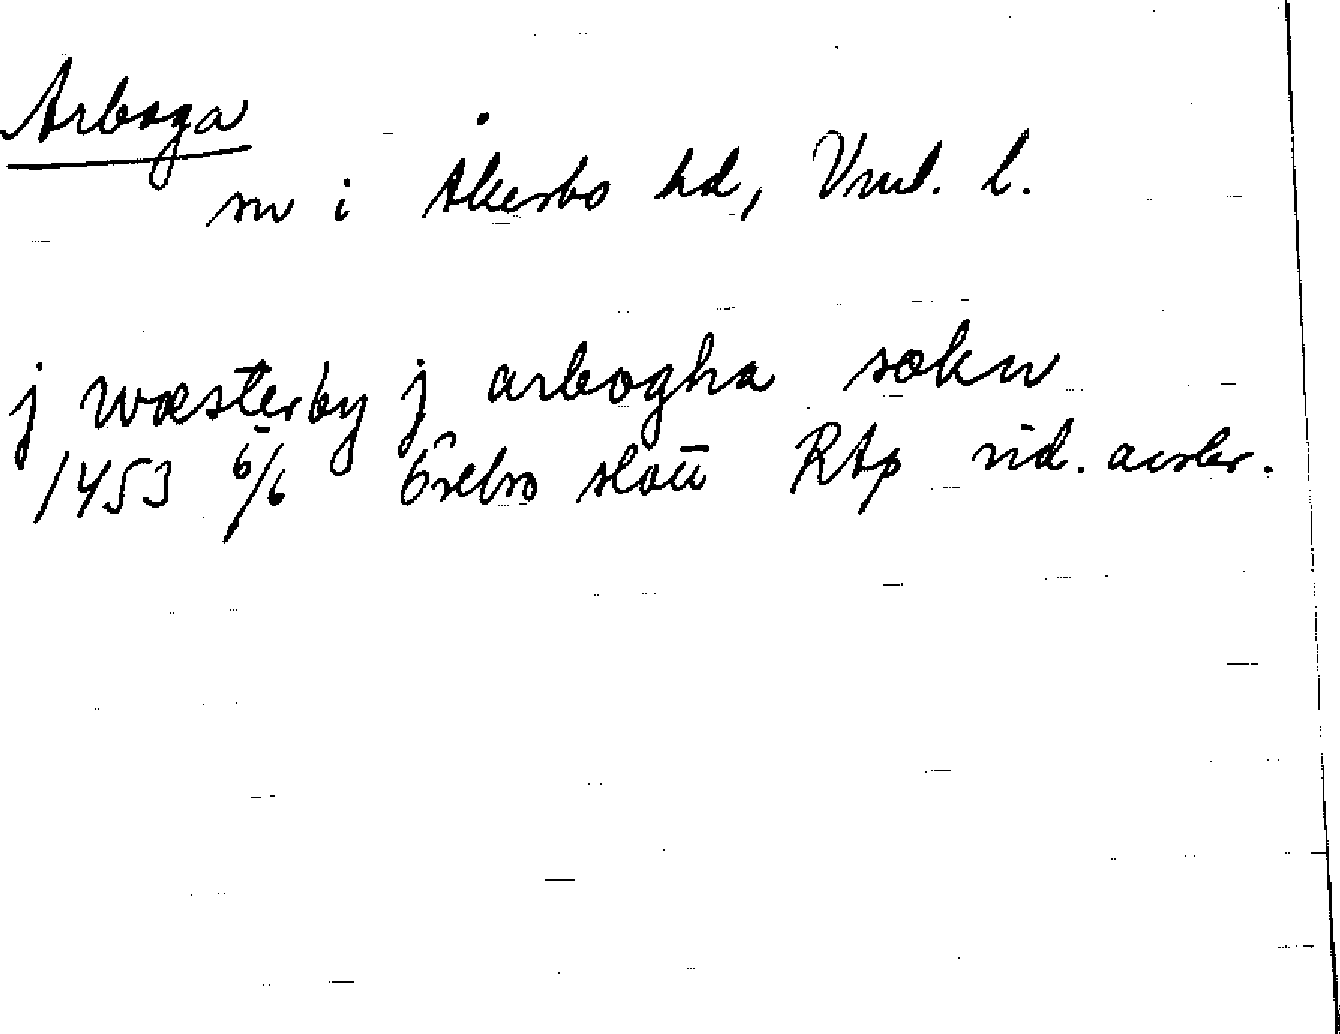 Arboga
sn i Åkerbo hd, Vml. l.
j wæsterby j arbogha sokn
1453 6/6 Örebro slott RAp vid. avskr.